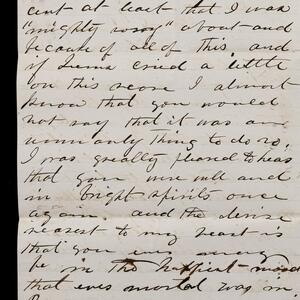 cent at least that I was
"mighty sorry" about and
because of all of this, and
if I even cried a little
on this score I almost
know that you would
not say that it was an
unmanly thing to do so.
I was greatly pleased to hear
that you were well and
in bright spirits once
again. and the desire
nearest to my heart is
that you may
be in the happiest mood
that ever mortal was in